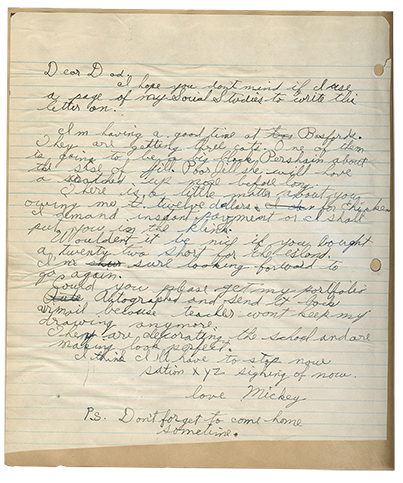 Dear Dad,
I hope you dont mind if I use
a page of my Social Studies to write this
letter on.
I'm having a good time at
They are getting three cats. One of them
is going to be a big black Pershain about
the size of Jill. Poor Jill she will have
a scratched up nose before long
There is a little matter about you
owing me twelve dollars. for
I demand instant payment or I shall
put you in the klink.
Wouldent it be nice if you bought
a twenty two short for the island.
I'm sure looking forward to
go again.
Could you please get my portfolio
Autographed and send it back
airmail because teacher wont keep my
drawing anymore.
They are decorating the school and are
making look perfect.
I think I'll have to stop now
sation XYZ signing of now.
love Mickey
P.S. Don't forget to come home
sometime.